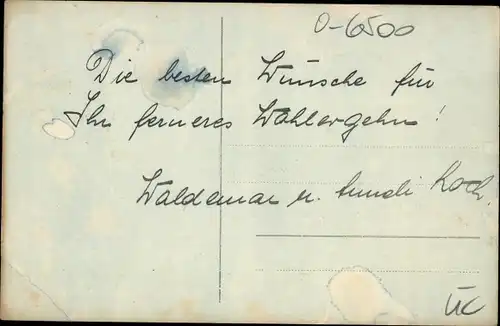 O-6500
Die besten Wünsche für
Ihr ferneres Wohlergehn!
Waldemar u. Koch.
ÜC